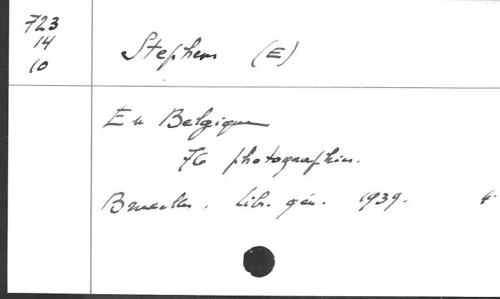 723
14
10
Stephens (E)
En Belgique
76 photographies.
Bruxelles. Libr. gén. 1939.